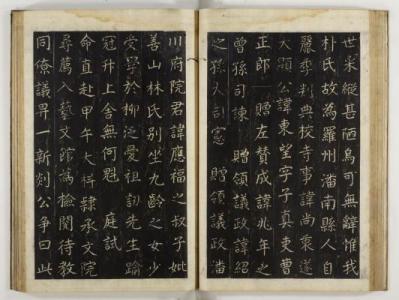 世采縱甚陋烏可無辭惟我
朴氏故為羅州潘南縣人自
麗季判典校寺事諱尚衷遂
大顯公諱東望字子真吏曹
正郎 贈左贊成諱兆年之
曾孫司諫 贈領議政諱紹
之孫大司憲 贈領議政潘
川府院君諱應福之叔子妣
善山林氏別坐九齡之女少
受學於柳泛愛祖訒先生踰
冠升上舍無何魁 庭試
命直赴甲午大科隸承文院
尋薦入藝文館為檢閱待教
同僚議畀一新剡公爭曰此